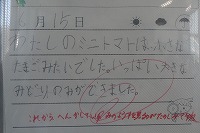 6月15日
わたしのミニトマトは、小さな
たまごみたいでした。いっぱい大きな
みどりのみができました。
これから へんかしていく